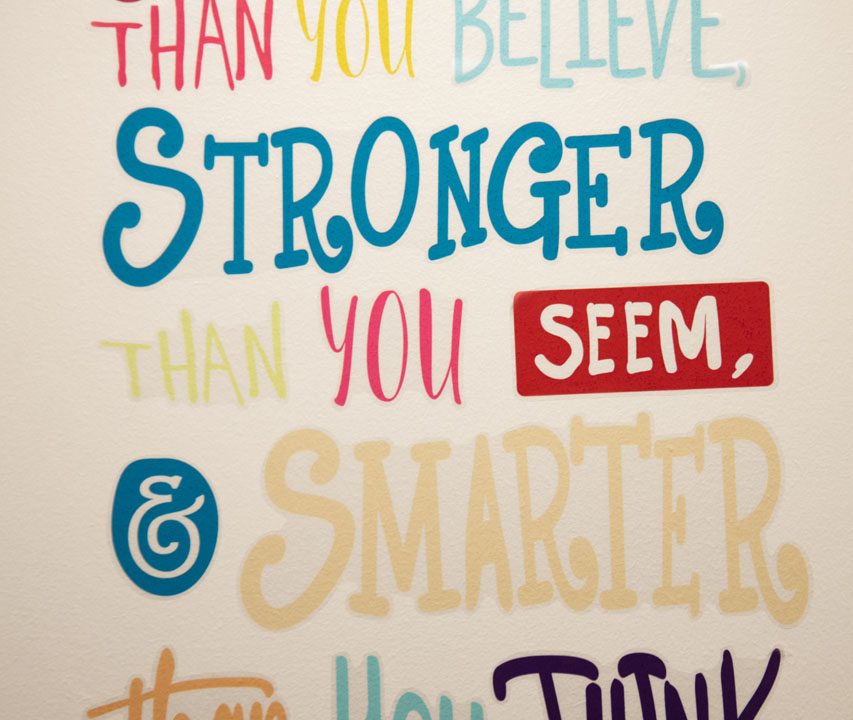 THAN YOU BELIEVE,
STRONGER
THAN YOU SEEM,
& SMARTER
than you THINK